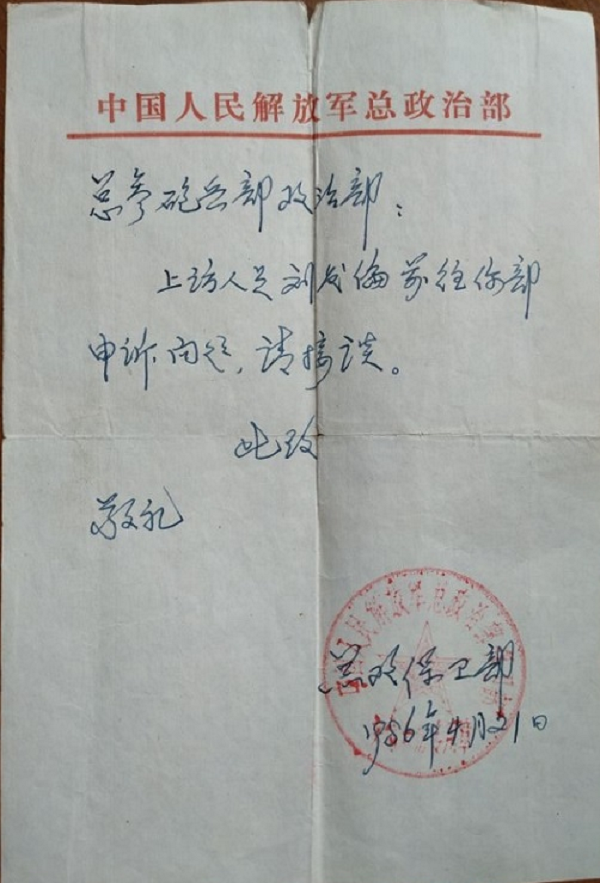 中国人民解放军总政治部
总参砲兵部政治部：
上访人员刘成偏前往你部
申诉问题，请接谈。
此致
敬礼
人民解放军总政治部
总政保卫部
1986年4月21日